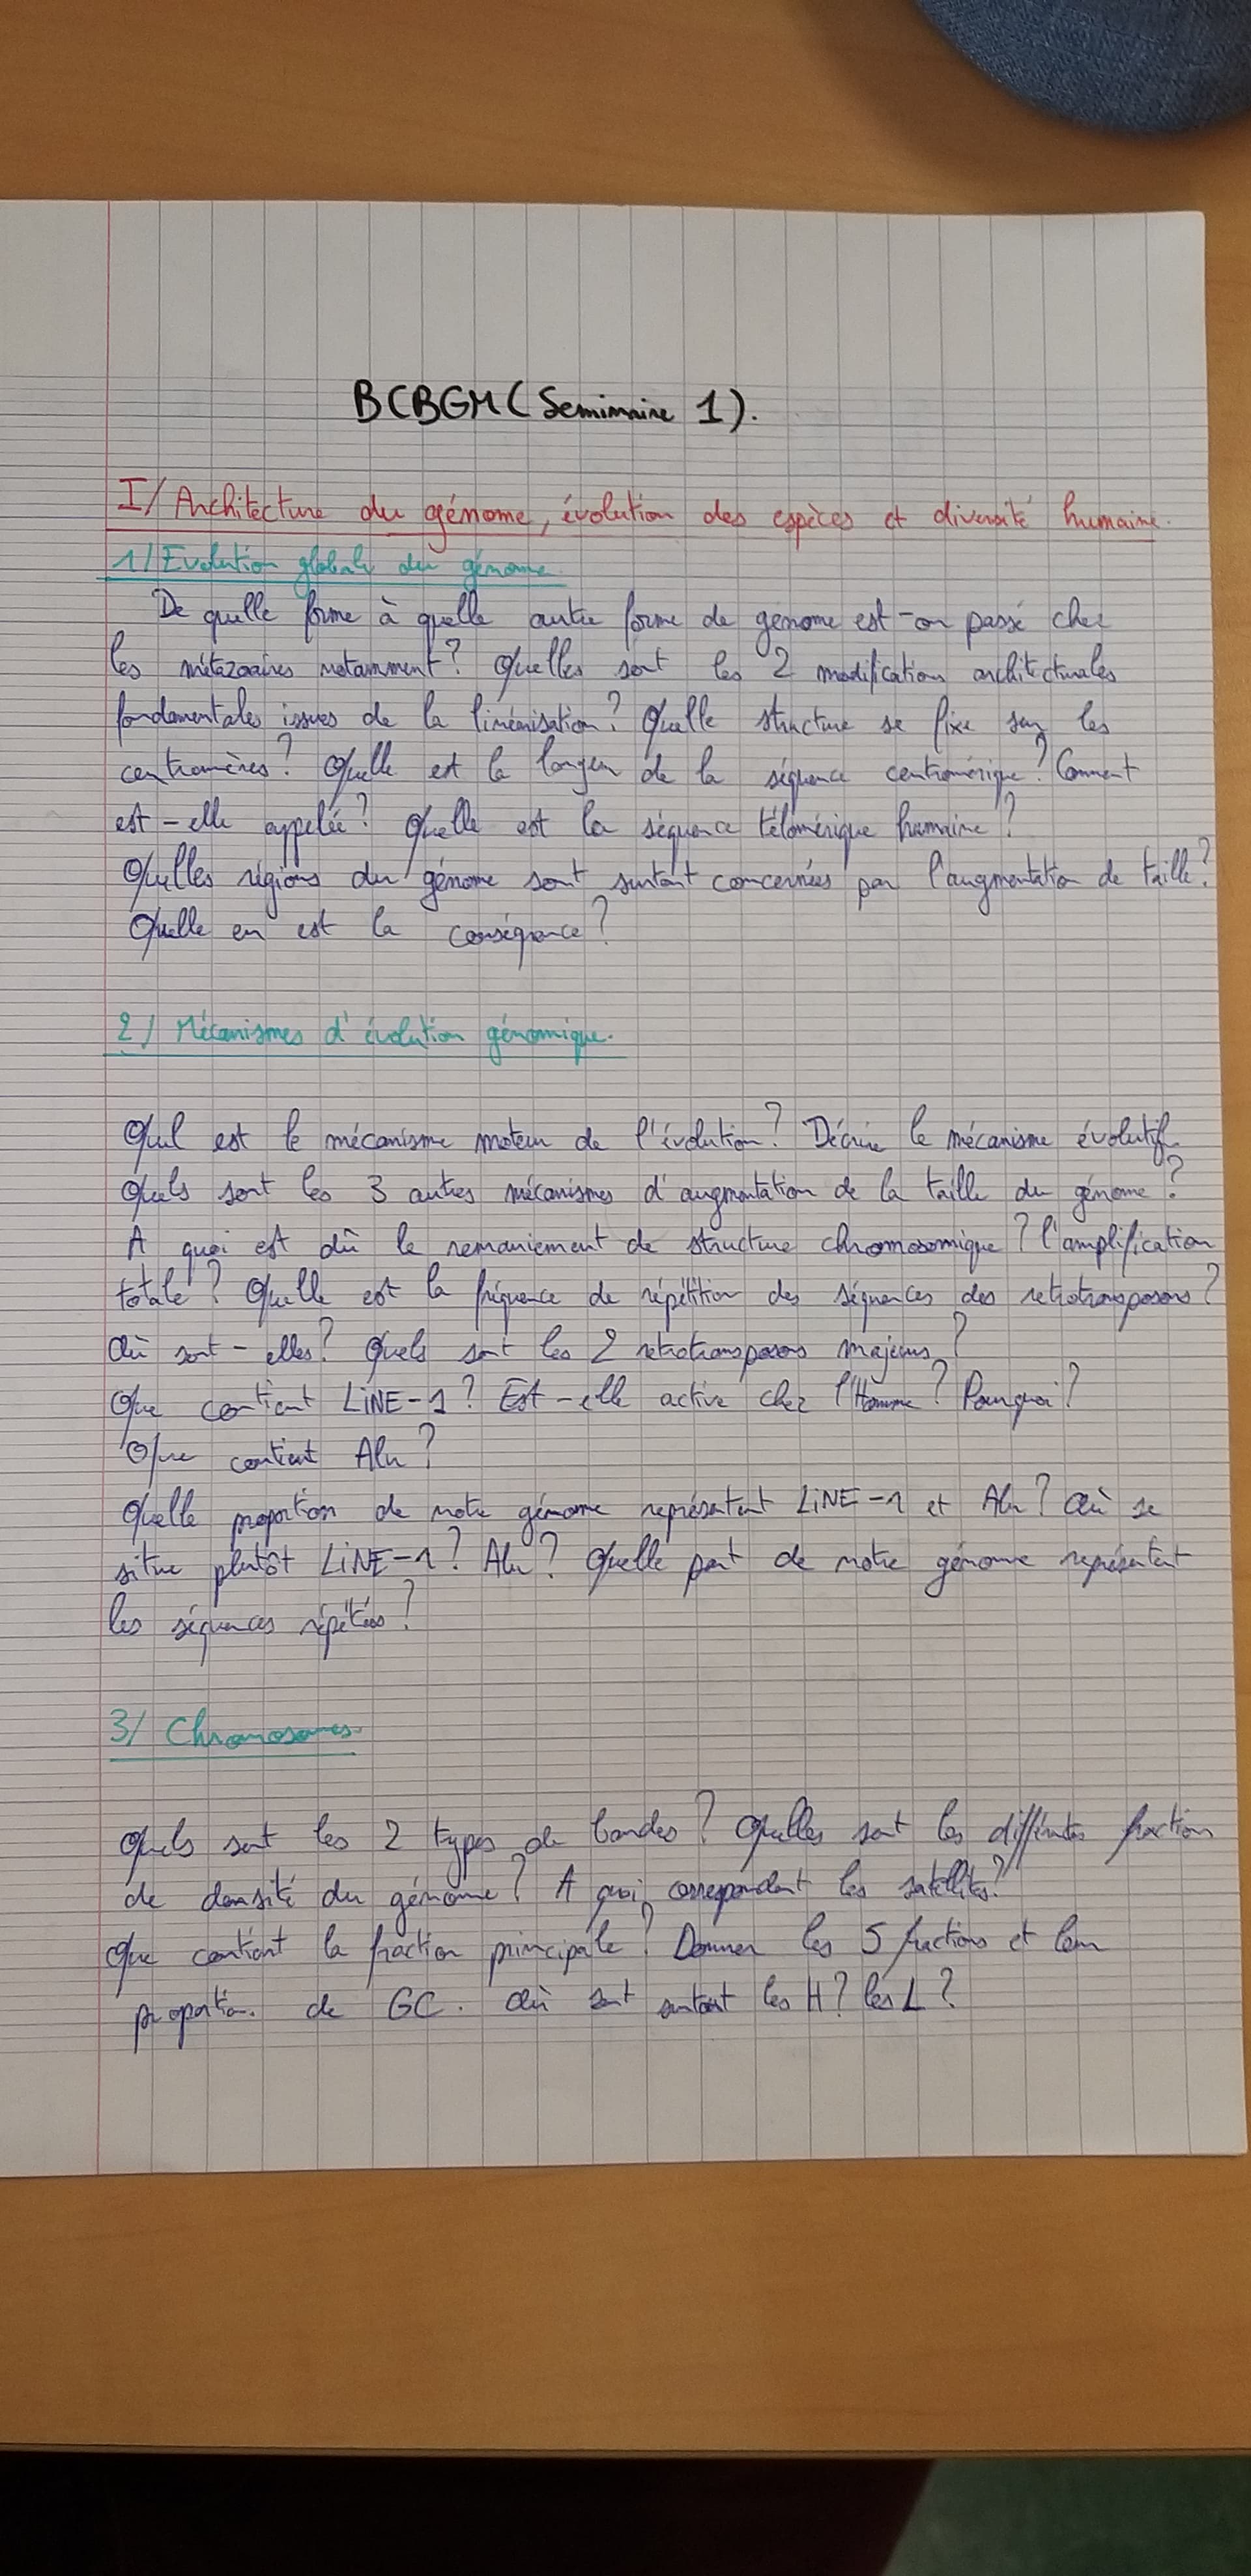 BCBGM (Seminaire 1).
I/ Architecture du génome, évolution des espèces et diversité humaine.
1/ Evolution globale du génome.
De quelle forme à quelle autre forme de génome est-on passé chez
les métazoaires notamment? Quelles sont les 2 modification architecturales
fondamentales issues de la linéarisation? Quelle structure se fixe sur les
centromères? Quelle est la longueur de la séquence centromérique? Comment
est-elle appelée? Quelle est la séquence télomérique humaine?
Quelles régions du génome sont surtout concernées par l'augmentation de taille?
Quelle en est la conséquence?
2/ Mécanismes d'évolution génomique.
Quel est le mécanisme moteur de l'évolution? Décrire le mécanisme évolutif.
Quels sont les 3 autres mécanismes d'augmentation de la taille du génome?
A quoi est dû le remaniement de structure chromosomique? l'amplification
totale? Quelle est la fréquence de répétition des séquences des retrotransposons?
Où sont-elles? Quels sont les 2 retrotransposons majeurs?
Que contient LiNE-1? Est-elle active chez l'Homme? Pourquoi?
Que contient Alu?
Quelle proportion de notre génome représentent LiNE-1 et Alu? Où se
situe plutôt LiNE-1? Alu? Quelle part de notre génome représentent
les séquences répétées?
3/ Chromosomes.
Quels sont les 2 types de bandes? Quelles sont les différentes fraction
de densité du génome? A quoi correspondent les satellites?
Que contient la fraction principale? Donner les 5 fractions et leur
proportion de GC. Où sont surtout les H? les L?